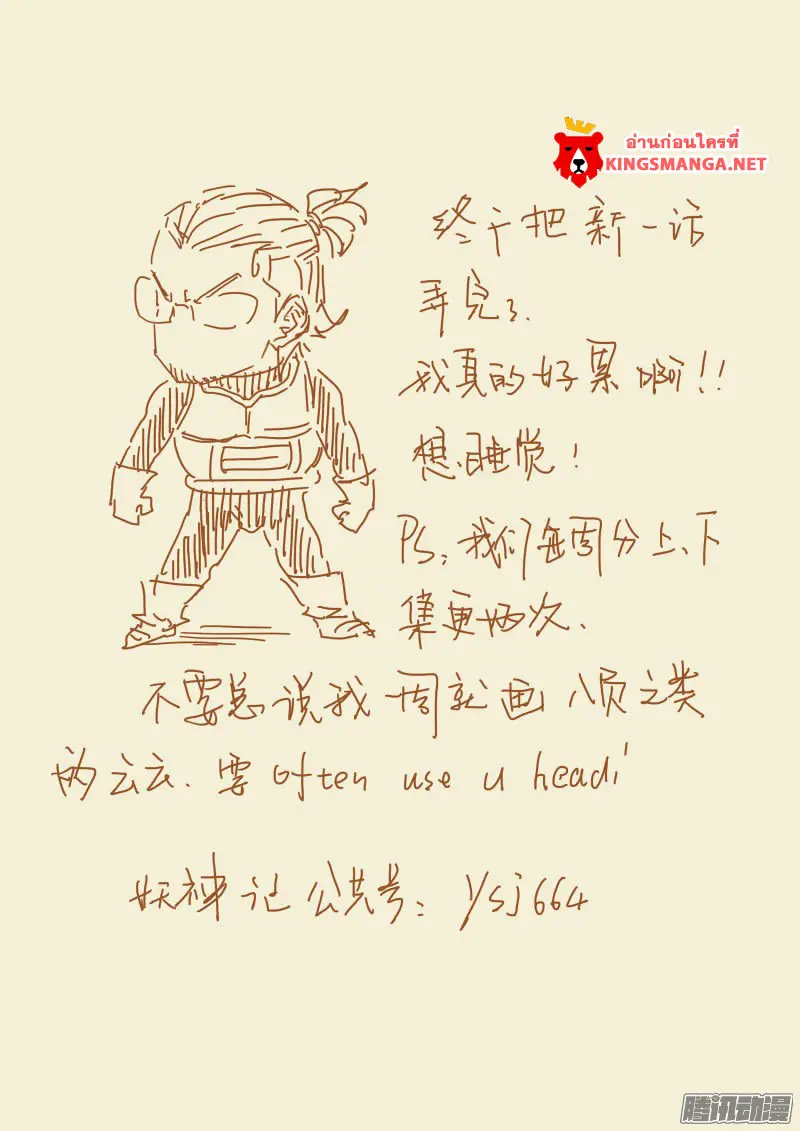 อ่านก่อนใครที่
KINGSMANGA.NET
终于把新一话
弄完了.
我真的好累啊!!
想睡觉!
PS:我们每周分上、下
集更两次.
不要总说我一周就画八页之类
的云云.要often use u head!
妖神记公共号:ysj664
腾讯动漫